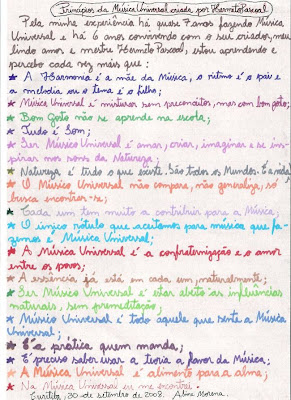 Princípios da Música Universal criada por Hermeto Pascoal
Pela minha experiência há quase 7 anos fazendo Música
Universal e há 6 anos convivendo com o seu criador, meu
lindo amor e mestre Hermeto Pascoal, estou aprendendo e
percebo cada vez mais que:
★ A Harmonia é a mãe da Música, o ritmo é o pai e
a melodia ou o tema é o filho;
★ Música Universal é misturar sem preconceitos, mas com bom gosto;
★ Bom Gosto não se aprende na escola;
★ Tudo é Som;
★ Ser Músico Universal é amar, criar, imaginar e se ins-
pirar nos sons da Natureza;
★ Natureza é tudo o que existe. São todos os Mundos. É a vida;
★ O Músico Universal não compara, não generaliza, só
busca encontrar-se;
★ Cada um tem muito a contribuir para a Música;
★ O único rótulo que aceitamos para música que fa-
zemos é Música Universal;
★ A Música Universal é a confraternização e o amor
entre os povos;
★ A essência já está em cada um, naturalmente;
★ Ser Músico Universal é estar aberto as influências
naturais, sem premeditação;
★ Músico Universal é todo aquele que sente a Música
Universal;
★ É a prática quem manda;
★ É preciso saber usar a teoria a favor da Música;
★ A Música Universal é alimento para a alma;
★ Na Música Universal eu me encontrei.
Curitiba, 30 de setembro de 2008. Aline Morena.